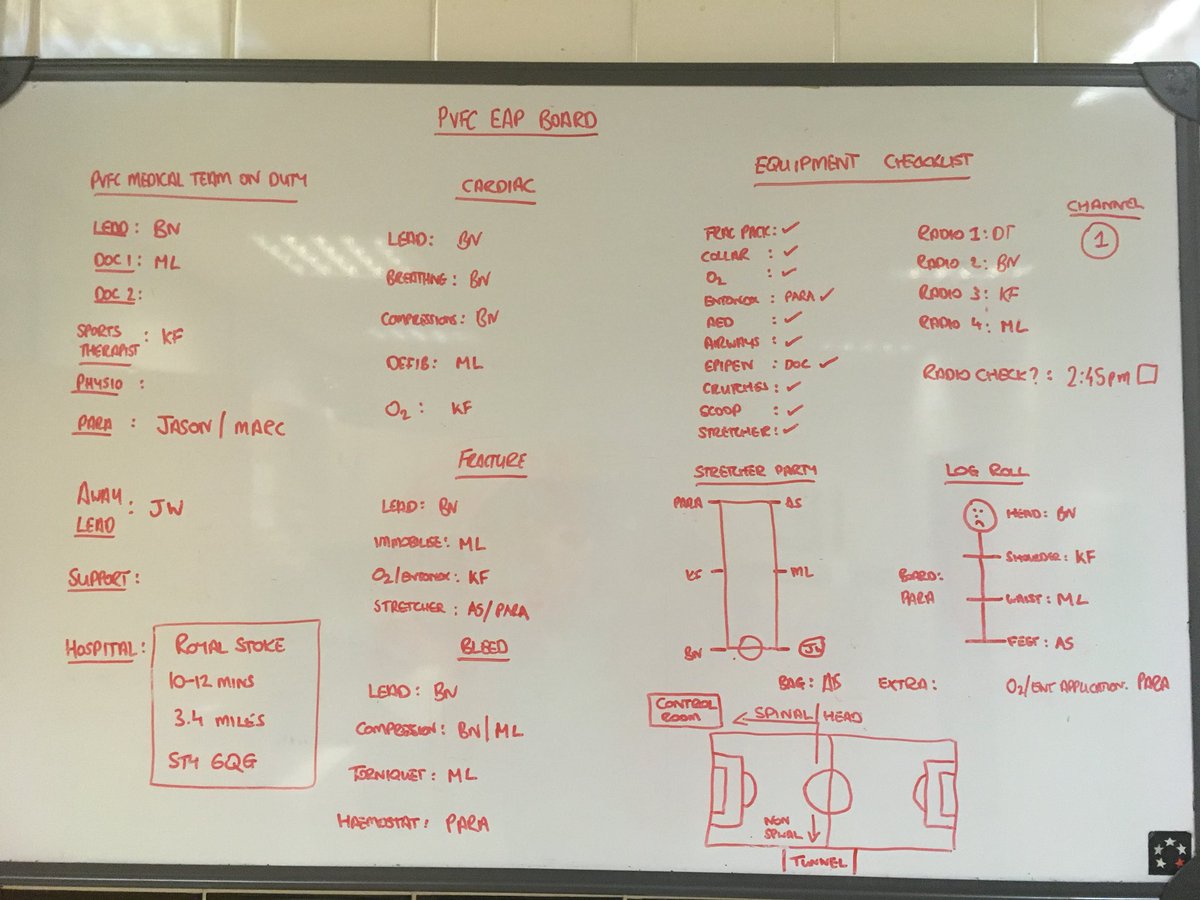 PVFC EAP BOARD
PVFC MEDICAL TEAM ON DUTY
LEAD: BN
DOC 1: ML
DOC 2:
SPORTS
THERAPIST : KF
PHYSIO :
PARA : JASON / MARC
AWAY
LEAD : JW
SUPPORT:
HOSPITAL:
ROYAL STOKE
10-12 MINS
3.4 MILES
ST4 6QG
CARDIAC
LEAD: BN
BREATHING: BN
COMPRESSIONS: BN
DEFIB: ML
O2 : KF
FRACTURE
LEAD: BN
IMMOBILISE: ML
O2/ENTONOX: KF
STRETCHER: AS/PARA
BLEED
LEAD: BN
COMPRESSION: BN/ML
TORNIQUET: ML
HAEMOSTAT: PARA
EQUIPMENT CHECKLIST
FRAC PACK: ✓
COLLAR : ✓
O2 : ✓
ENTONOX : PARA ✓
AED : ✓
AIRWAYS : ✓
EPIPEN : DOC ✓
CRUTCHES : ✓
SCOOP : ✓
STRETCHER: ✓
RADIO 1: DT
RADIO 2: BN
RADIO 3: KF
RADIO 4: ML
CHANNEL
1
RADIO CHECK?: 2:45pm □
STRETCHER PARTY
PARA AS
KF ML
BN JW
BAG: AS EXTRA:
LOG ROLL
HEAD: BN
SHOULDER: KF
BOARD:
PARA
WAIST: ML
FEET: AS
O2/ENT APPLICATION: PARA
CONTROL
ROOM
SPINAL/HEAD
NON
SPINAL
TUNNEL